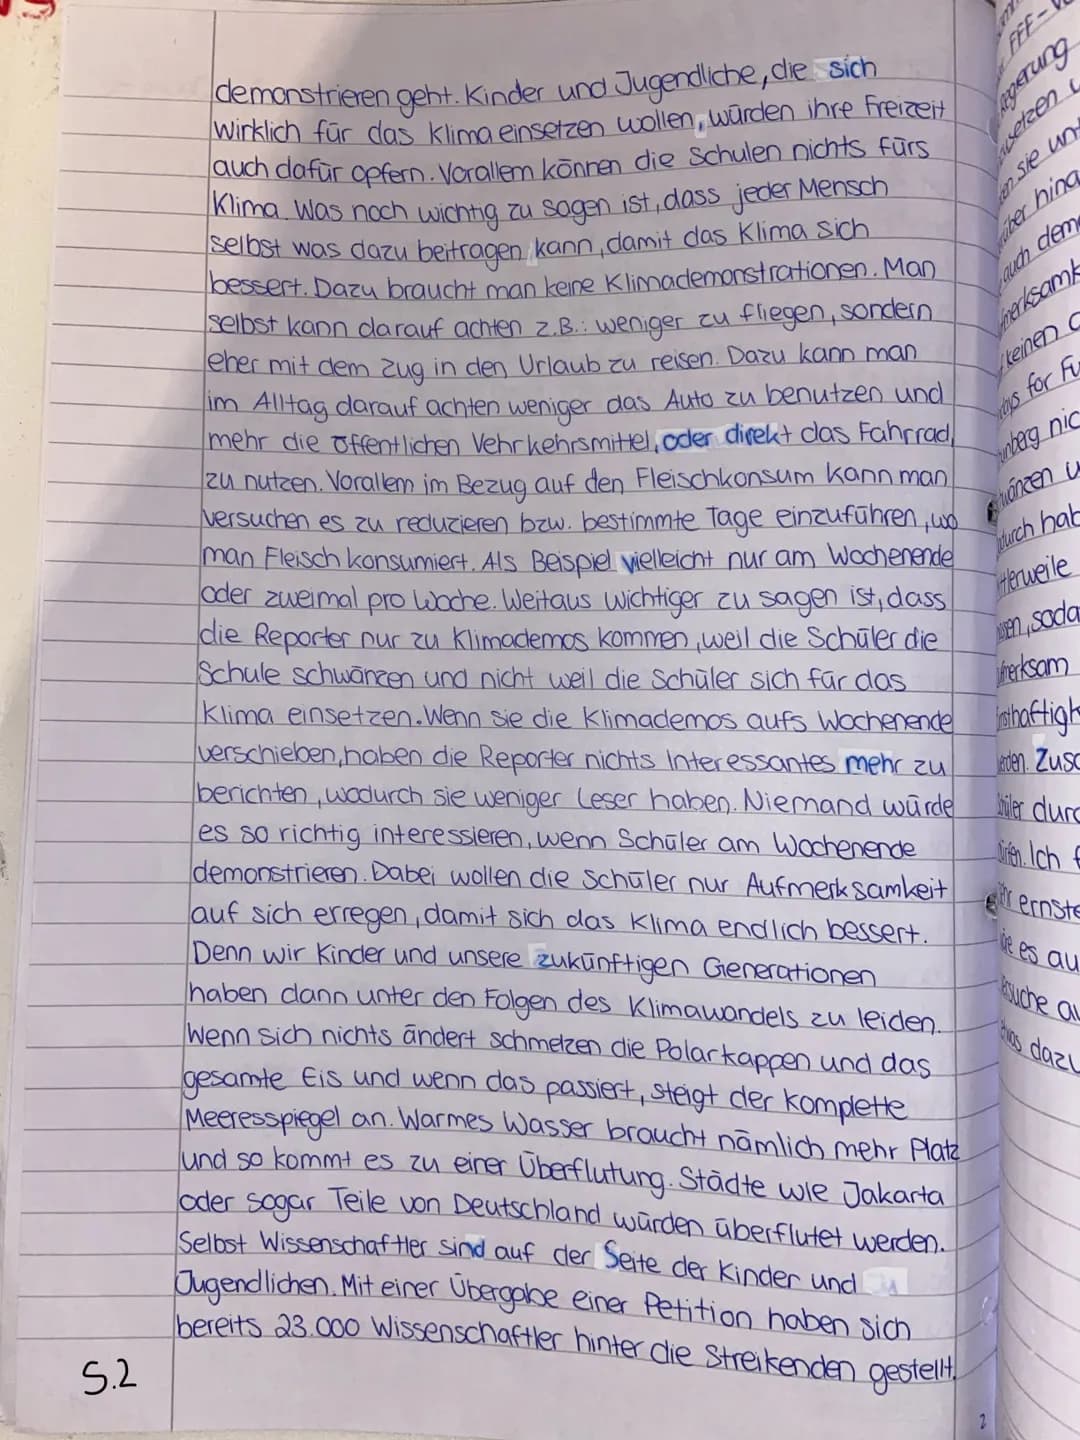 demonstrieren geht. Kinder und Jugendliche, die sich
wirklich für das Klima einsetzen wollen, würden ihre Freizeit
auch dafür opfern. Vorallem können die Schulen nichts fürs
Klima. Was noch wichtig zu sagen ist, dass jeder Mensch
selbst was dazu beitragen kann, damit das Klima sich
bessert. Dazu braucht man keine Klimademonstrationen. Man
selbst kann darauf achten z.B.: weniger zu fliegen, sondern
eher mit dem Zug in den Urlaub zu reisen. Dazu kann man
im Alltag darauf achten weniger das Auto zu benutzen und
mehr die öffentlichen Vehrkehrsmittel, oder direkt das Fahrrad
zu nutzen. Vorallem im Bezug auf den Fleischkonsum kann man
versuchen es zu reduzieren bzw. bestimmte Tage einzuführen, wo
man Fleisch konsumiert. Als Beispiel vielleicht nur am Wochenende
oder zweimal pro Woche. Weitaus wichtiger zu sagen ist, dass
die Reporter nur zu Klimademos kommen, weil die Schüler die
Schule schwänzen und nicht weil die Schüler sich für das
Klima einsetzen. Wenn sie die Klimademos aufs Wochenende
verschieben, haben die Reporter nichts Interessantes mehr zu
berichten, wodurch sie weniger Leser haben. Niemand würde
es so richtig interessieren, wenn Schüler am Wochenende
demonstrieren. Dabei wollen die Schüler nur Aufmerksamkeit
auf sich erregen, damit sich das Klima endlich bessert.
Denn wir Kinder und unsere zukünftigen Generationen
haben dann unter den Folgen des Klimawandels zu leiden.
Wenn sich nichts ändert schmelzen die Polarkappen und das
gesamte Eis und wenn das passiert, steigt der komplette
Meeresspiegel an. Warmes Wasser braucht nämlich mehr Platz
und so kommt es zu einer Überflutung. Städte wie Jakarta
oder sogar Teile von Deutschland würden überflutet werden.
Selbst Wissenschaftler sind auf der Seite der Kinder und
Jugendlichen. Mit einer Übergabe einer Petition haben sich
bereits 23.000 Wissenschaftler hinter die Streikenden gestellt.
S.2
2
FFF-
setzen
sie
hina
auch
keinen
for
nic
hab
soda
Zuso
durc
Ich
ernste
es au
dazu